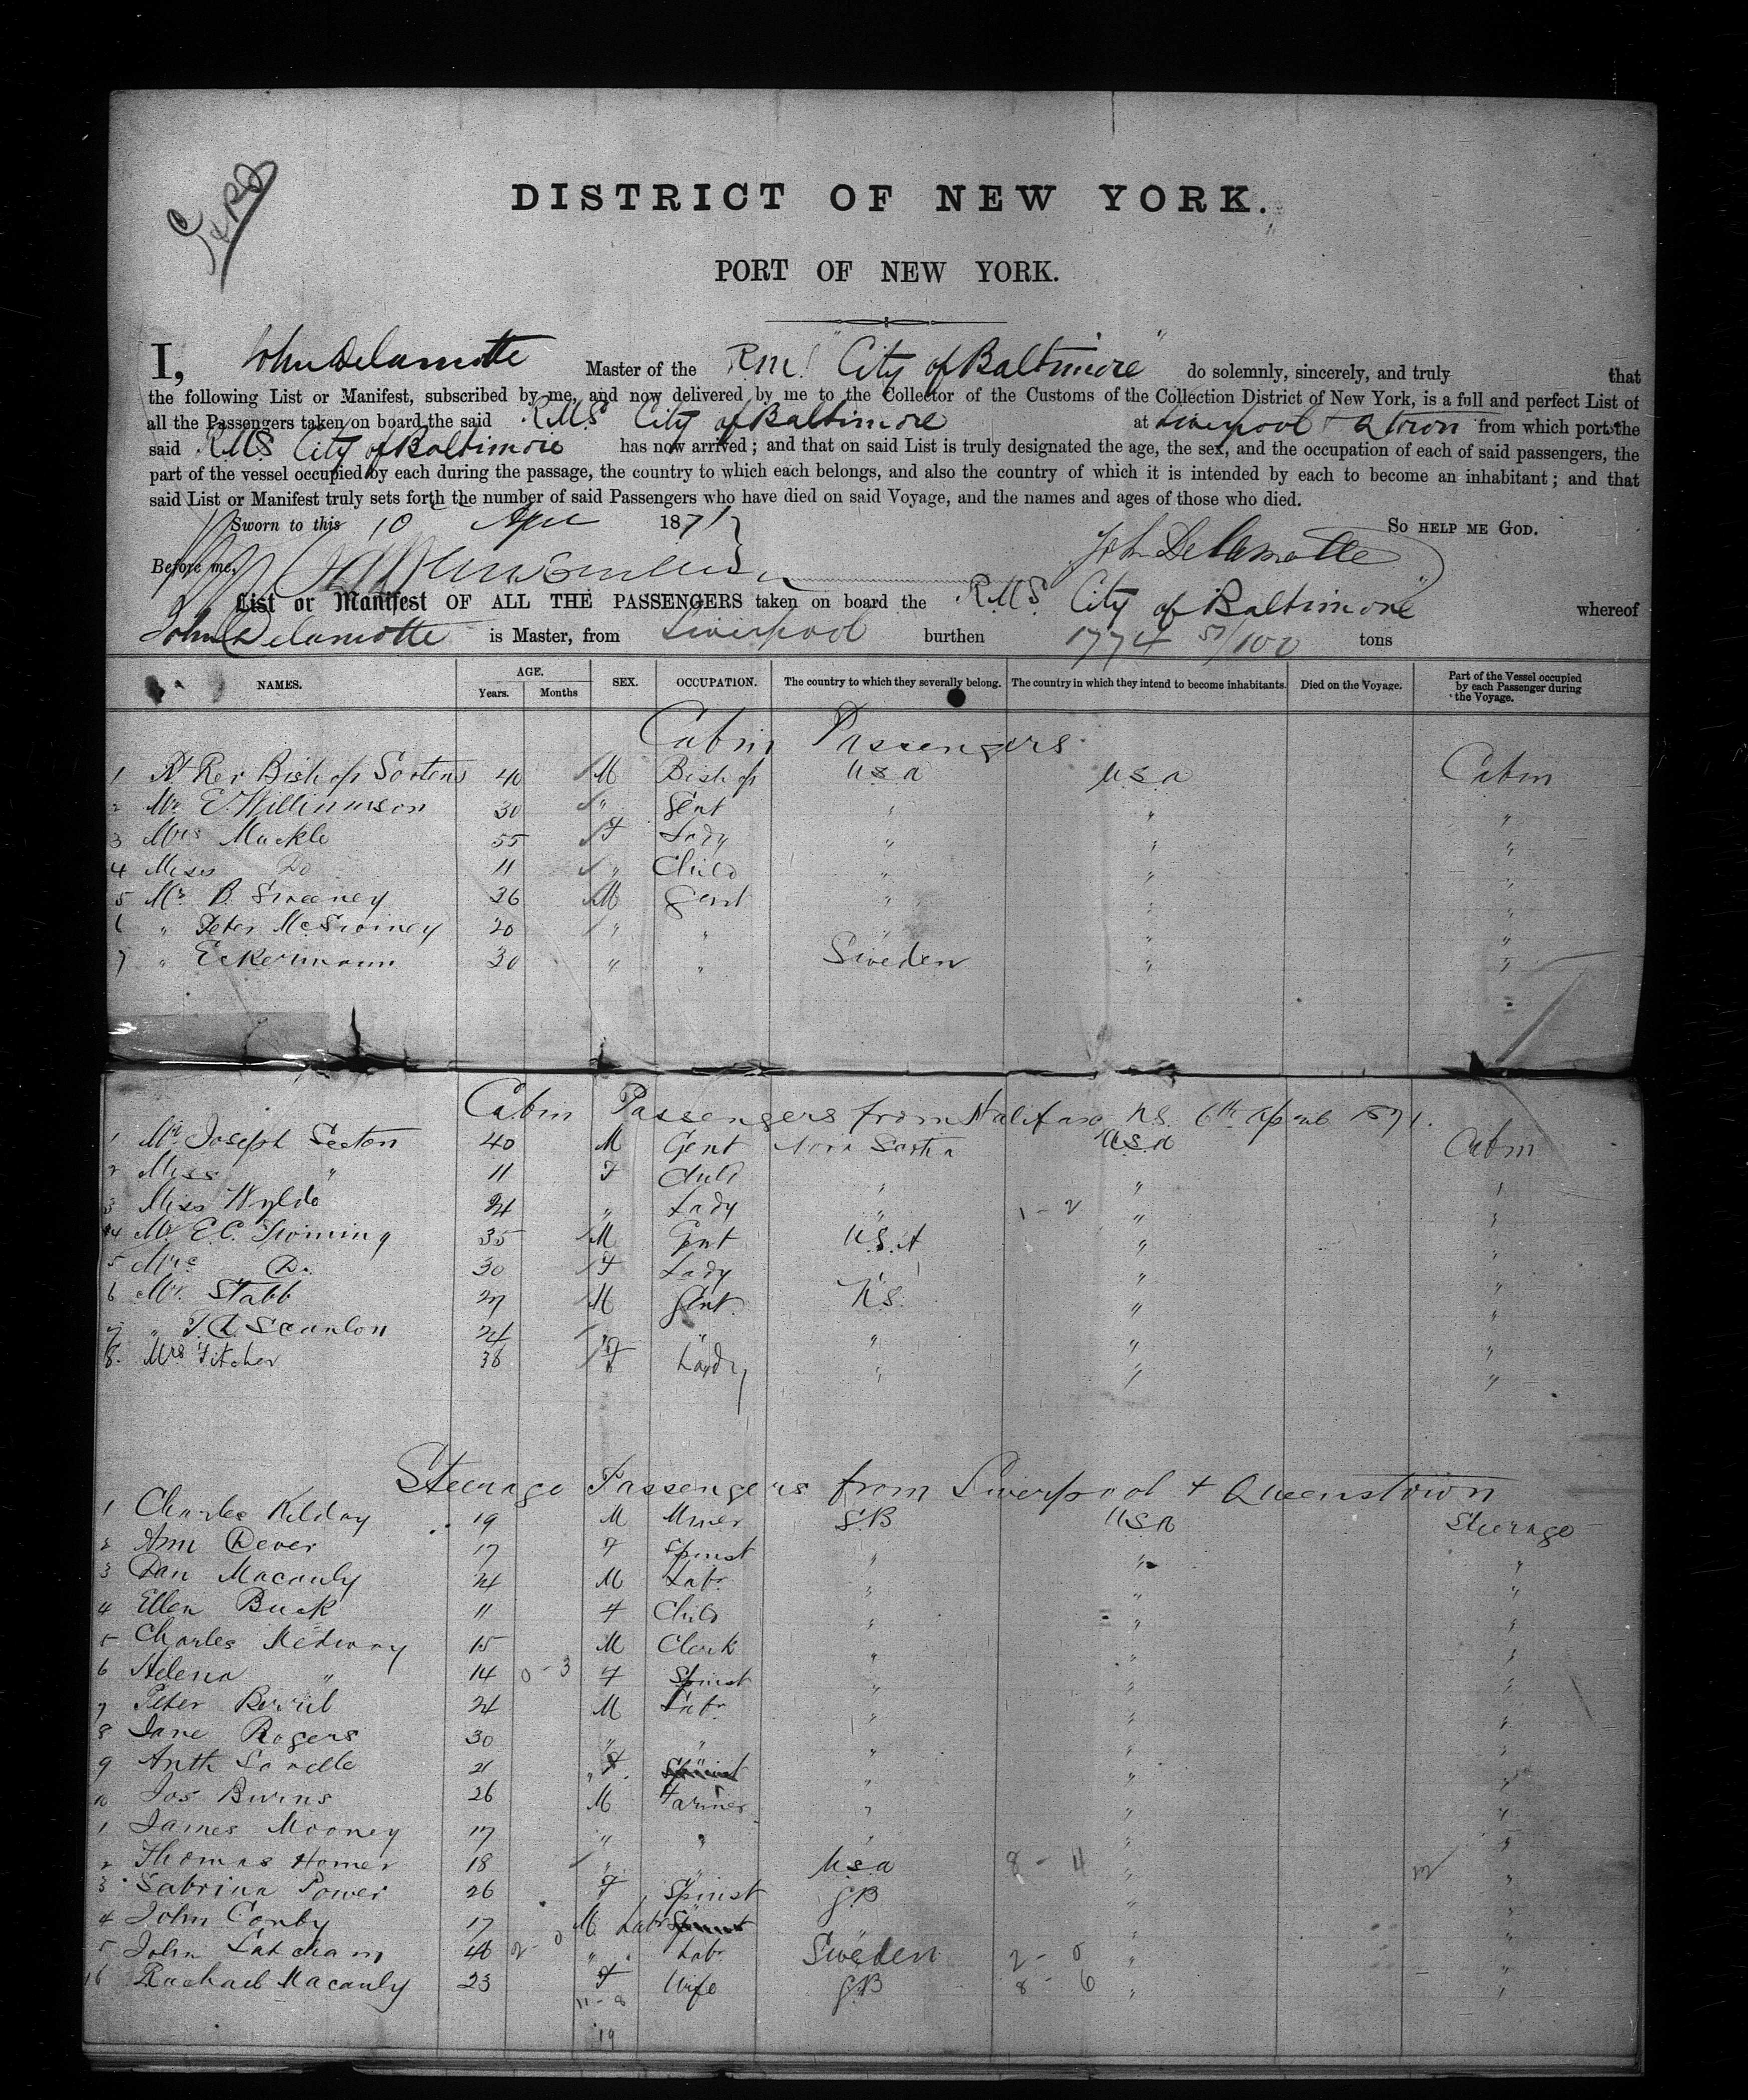 DISTRICT OF NEW YORK.
PORT OF NEW YORK.
I, John Delamotte Master of the R.M.S. "City of Baltimore" do solemnly, sincerely, and truly that
the following List or Manifest, subscribed by me, and now delivered by me to the Collector of the Customs of the Collection District of New York, is a full and perfect List of
all the Passengers taken on board the said RMS City of Baltimore at Liverpool & Qtown from which port the
said RMS City of Baltimore has now arrived; and that on said List is truly designated the age, the sex, and the occupation of each of said passengers, the
part of the vessel occupied by each during the passage, the country to which each belongs, and also the country of which it is intended by each to become an inhabitant; and that
said List or Manifest truly sets forth the number of said Passengers who have died on said Voyage, and the names and ages of those who died.
Sworn to this 10 Apl 1871 SO HELP ME GOD.
Before me, John Delamotte
List or Manifest OF ALL THE PASSENGERS taken on board the R.M.S. City of Baltimore whereof
John Delamotte is Master, from Liverpool burthen 1774 51/100 tons
NAMES. AGE. Years. Months SEX. OCCUPATION. The country to which they severally belong. The country in which they intend to become inhabitants. Died on the Voyage. Part of the Vessel occupied by each Passenger during the Voyage.
Cabin Passengers
1 Rt Rev Bishop 40 M Bishop USA USA Cabin
2 Mr E. Williamson 30 " Gent " " "
3 Mrs Muckle 55 F Lady " " "
4 Miss Do 11 " Child " " "
5 Mr B. Sweeney 36 M Gent " " "
6 " Peter McSwiney 20 " " " " "
7 " Eckermann 30 " " Sweden " "
Cabin Passengers from Halifax N.S. 6th April 1871.
1 Mr Joseph Seeton 40 M Gent Nova Scotia USA Cabin
2 Miss " 11 F Child " " "
3 Miss Wylde 24 " Lady " 1-2 " "
4 Mr E.C. Twining 35 M Gent U.S.A " "
5 Mrs Do. 30 F Lady " " "
6 Mr. Stabb 27 M Gent. N.S. " "
7 " T.A. Scanlon 24 " " " " "
8. Mrs Fitcher 36 F Lady " " "
Steerage Passengers from Liverpool & Queenstown
1 Charles Kilday 19 M Miner G.B USA Steerage
2 Ann Dever 17 F Spinst " " "
3 Dan Macauly 24 M Labr " " "
4 Ellen Buck 11 F Child " " "
5 Charles Medway 15 M Clerk " " "
6 Helena " 14 0-3 F Spinst " " "
7 Peter 24 M Labr " " "
8 Jane Rogers 30 " " " " "
9 Anth Lavelle 21 " F. Spinst " " "
10 Jos Burns 26 M Farmer " " "
1 James Mooney 17 " " " " "
2 Thomas Homer 18 " " U.S.a 8-4 " "
3 Sabrina Power 26 F Spinst G.B " "
4 John Conby 17 M Labr Spinst " " "
5 John 40 2-0 " Labr Sweden 2-0 " "
16 Rachael Macauly 23 F Wife G.B 8-6 " "
11-8
19